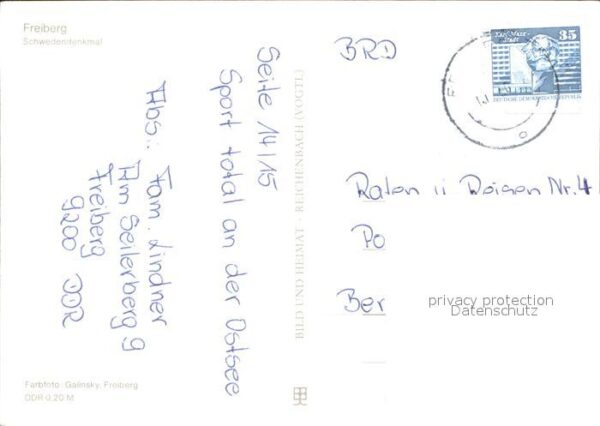 Freiberg
Schwedendenkmal
Seite 14/15
Sport total an der Ostsee
Abs.: Fam. Lindner
Am Seilerberg 9
Freiberg
9200 DDR
Farbfoto: Galinsky, Freiberg
DDR 0.20 M
BILD UND HEIMAT · REICHENBACH (VOGTL)
BRD
Karl-Marx-
Stadt
35
DEUTSCHE DEMOKRATISCHE REPUBLIK
Raten Nr. 4
Po
Ber
privacy protection
Datenschutz